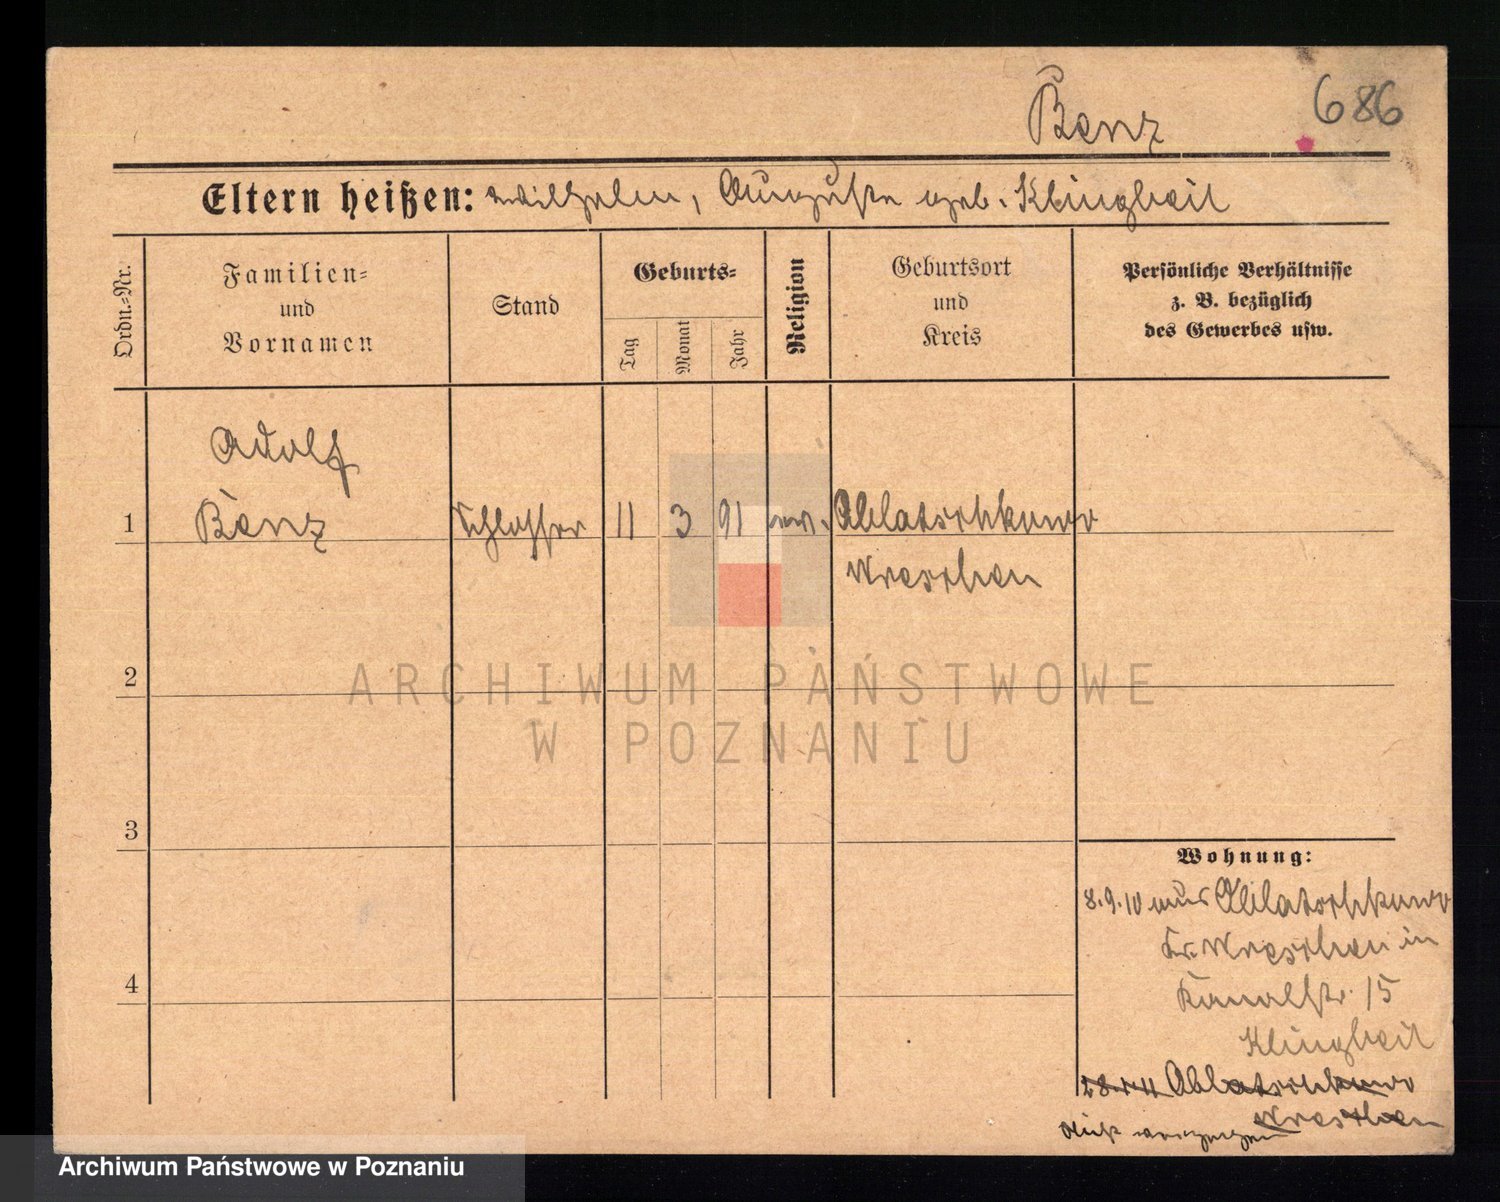 Benz
686
Eltern heißen: Wilhelm, Auguste geb. Klingbeil
Ordn.-Nr.
Familien-
und
Vornamen
Stand
Geburts-
Tag
Monat
Jahr
Religion
Geburtsort
und
Kreis
Persönliche Verhältnisse
z. B. bezüglich
des Gewerbes usw.
Adolf
1 Benz Schlosser 11 3 91 ev.
Wreschen
2
ARCHIWUM PAŃSTWOWE
W POZNANIU
3
Wohnung:
8.9.10 aus
Kr. Wreschen in
Kanalstr. 15
4
Klingbeil
Wreschen
Archiwum Państwowe w Poznaniu